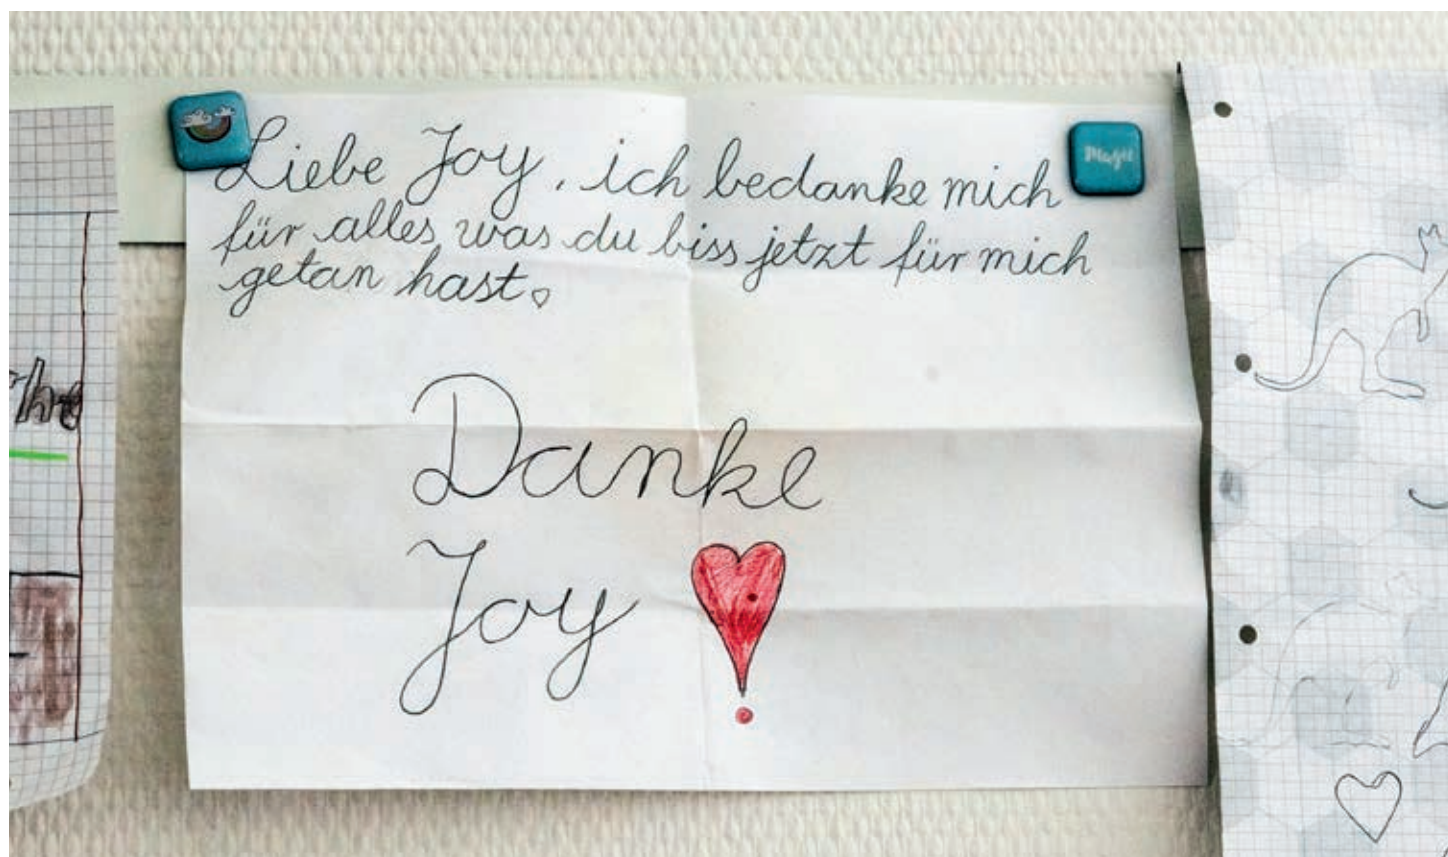 Liebe Joy, ich bedanke mich
für alles was du biss jetzt für mich
getan hast.
Danke
Joy
Magic